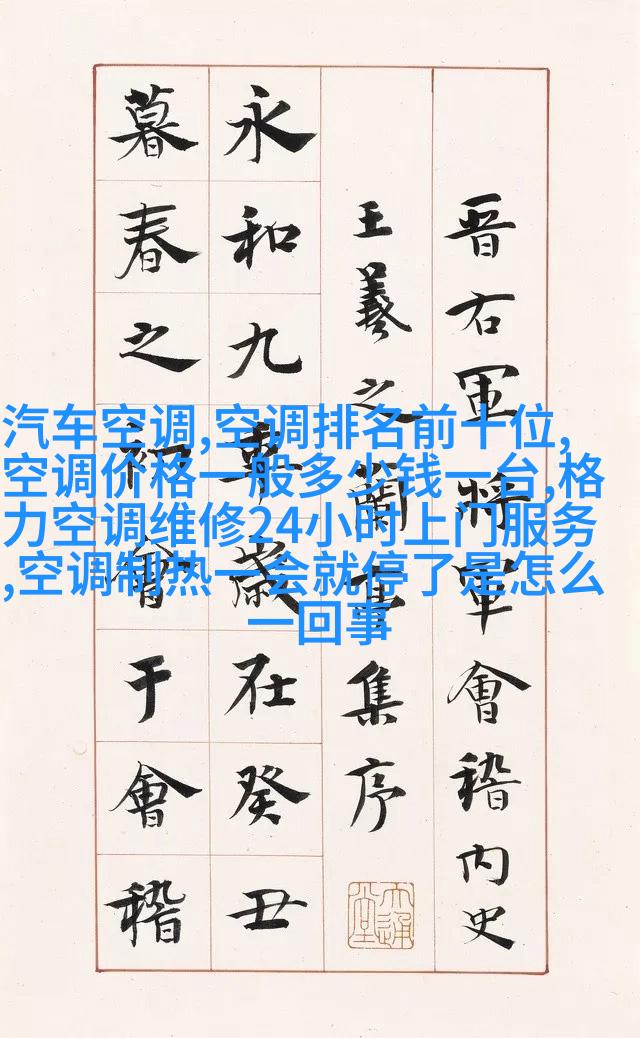 晋右軍將軍會稽内史
王羲之蘭亭集序
永和九年歲在癸丑
暮春之初會于會稽
汽车空调,空调排名前十位,
空调价格一般多少钱一台,格
力空调维修24小时上门服务
,空调制热一会就停了是怎么
一回事